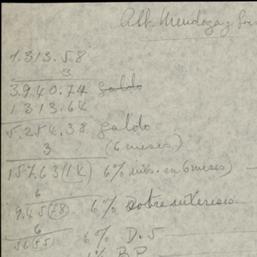 Mendoza y
1.313.58
3
3.940.74 saldo
1.313.64
5.254.38 saldo
3 (6 meses)
15763(14) 6% mbs. en 6 meses)
6
945(78) 6% sobre intereses
6
6% D.S
1% B.P.